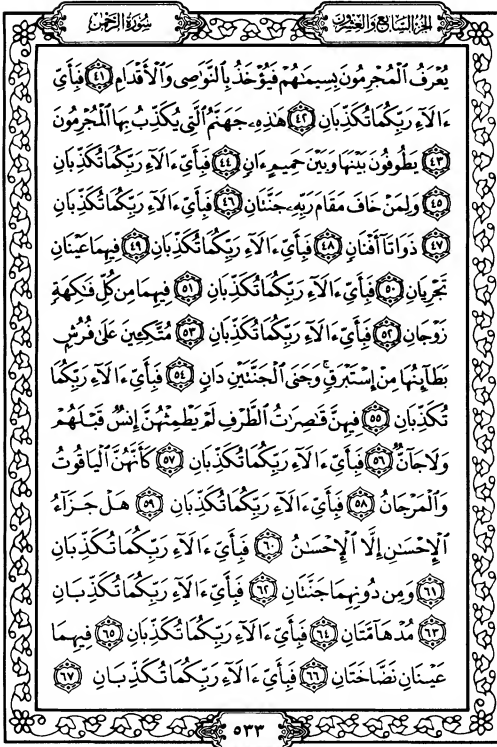 الجزء السابع والعشرون
سورة الرحمن
يُعْرَفُ ٱلْمُجْرِمُونَ بِسِيمَٰهُمْ فَيُؤْخَذُ بِٱلنَّوَٰصِى وَٱلْأَقْدَامِ ﴿٤١﴾ فَبِأَىِّ
ءَالَآءِ رَبِّكُمَا تُكَذِّبَانِ ﴿٤٢﴾ هَٰذِهِۦ جَهَنَّمُ ٱلَّتِى يُكَذِّبُ بِهَا ٱلْمُجْرِمُونَ
﴿٤٣﴾ يَطُوفُونَ بَيْنَهَا وَبَيْنَ حَمِيمٍ ءَانٍ ﴿٤٤﴾ فَبِأَىِّ ءَالَآءِ رَبِّكُمَا تُكَذِّبَانِ
﴿٤٥﴾ وَلِمَنْ خَافَ مَقَامَ رَبِّهِۦ جَنَّتَانِ ﴿٤٦﴾ فَبِأَىِّ ءَالَآءِ رَبِّكُمَا تُكَذِّبَانِ
﴿٤٧﴾ ذَوَاتَآ أَفْنَانٍ ﴿٤٨﴾ فَبِأَىِّ ءَالَآءِ رَبِّكُمَا تُكَذِّبَانِ ﴿٤٩﴾ فِيهِمَا عَيْنَانِ
تَجْرِيَانِ ﴿٥٠﴾ فَبِأَىِّ ءَالَآءِ رَبِّكُمَا تُكَذِّبَانِ ﴿٥١﴾ فِيهِمَا مِن كُلِّ فَٰكِهَةٍ
زَوْجَانِ ﴿٥٢﴾ فَبِأَىِّ ءَالَآءِ رَبِّكُمَا تُكَذِّبَانِ ﴿٥٣﴾ مُتَّكِـِٔينَ عَلَىٰ فُرُشٍۭ
بَطَآئِنُهَا مِنْ إِسْتَبْرَقٍ ۚ وَجَنَى ٱلْجَنَّتَيْنِ دَانٍ ﴿٥٤﴾ فَبِأَىِّ ءَالَآءِ رَبِّكُمَا
تُكَذِّبَانِ ﴿٥٥﴾ فِيهِنَّ قَٰصِرَٰتُ ٱلطَّرْفِ لَمْ يَطْمِثْهُنَّ إِنسٌ قَبْلَهُمْ
وَلَا جَآنٌّ ﴿٥٦﴾ فَبِأَىِّ ءَالَآءِ رَبِّكُمَا تُكَذِّبَانِ ﴿٥٧﴾ كَأَنَّهُنَّ ٱلْيَاقُوتُ
وَٱلْمَرْجَانُ ﴿٥٨﴾ فَبِأَىِّ ءَالَآءِ رَبِّكُمَا تُكَذِّبَانِ ﴿٥٩﴾ هَلْ جَزَآءُ
ٱلْإِحْسَٰنِ إِلَّا ٱلْإِحْسَٰنُ ﴿٦٠﴾ فَبِأَىِّ ءَالَآءِ رَبِّكُمَا تُكَذِّبَانِ
﴿٦١﴾ وَمِن دُونِهِمَا جَنَّتَانِ ﴿٦٢﴾ فَبِأَىِّ ءَالَآءِ رَبِّكُمَا تُكَذِّبَانِ
﴿٦٣﴾ مُدْهَآمَّتَانِ ﴿٦٤﴾ فَبِأَىِّ ءَالَآءِ رَبِّكُمَا تُكَذِّبَانِ ﴿٦٥﴾ فِيهِمَا
عَيْنَانِ نَضَّاخَتَانِ ﴿٦٦﴾ فَبِأَىِّ ءَالَآءِ رَبِّكُمَا تُكَذِّبَانِ ﴿٦٧﴾
٥٣٣